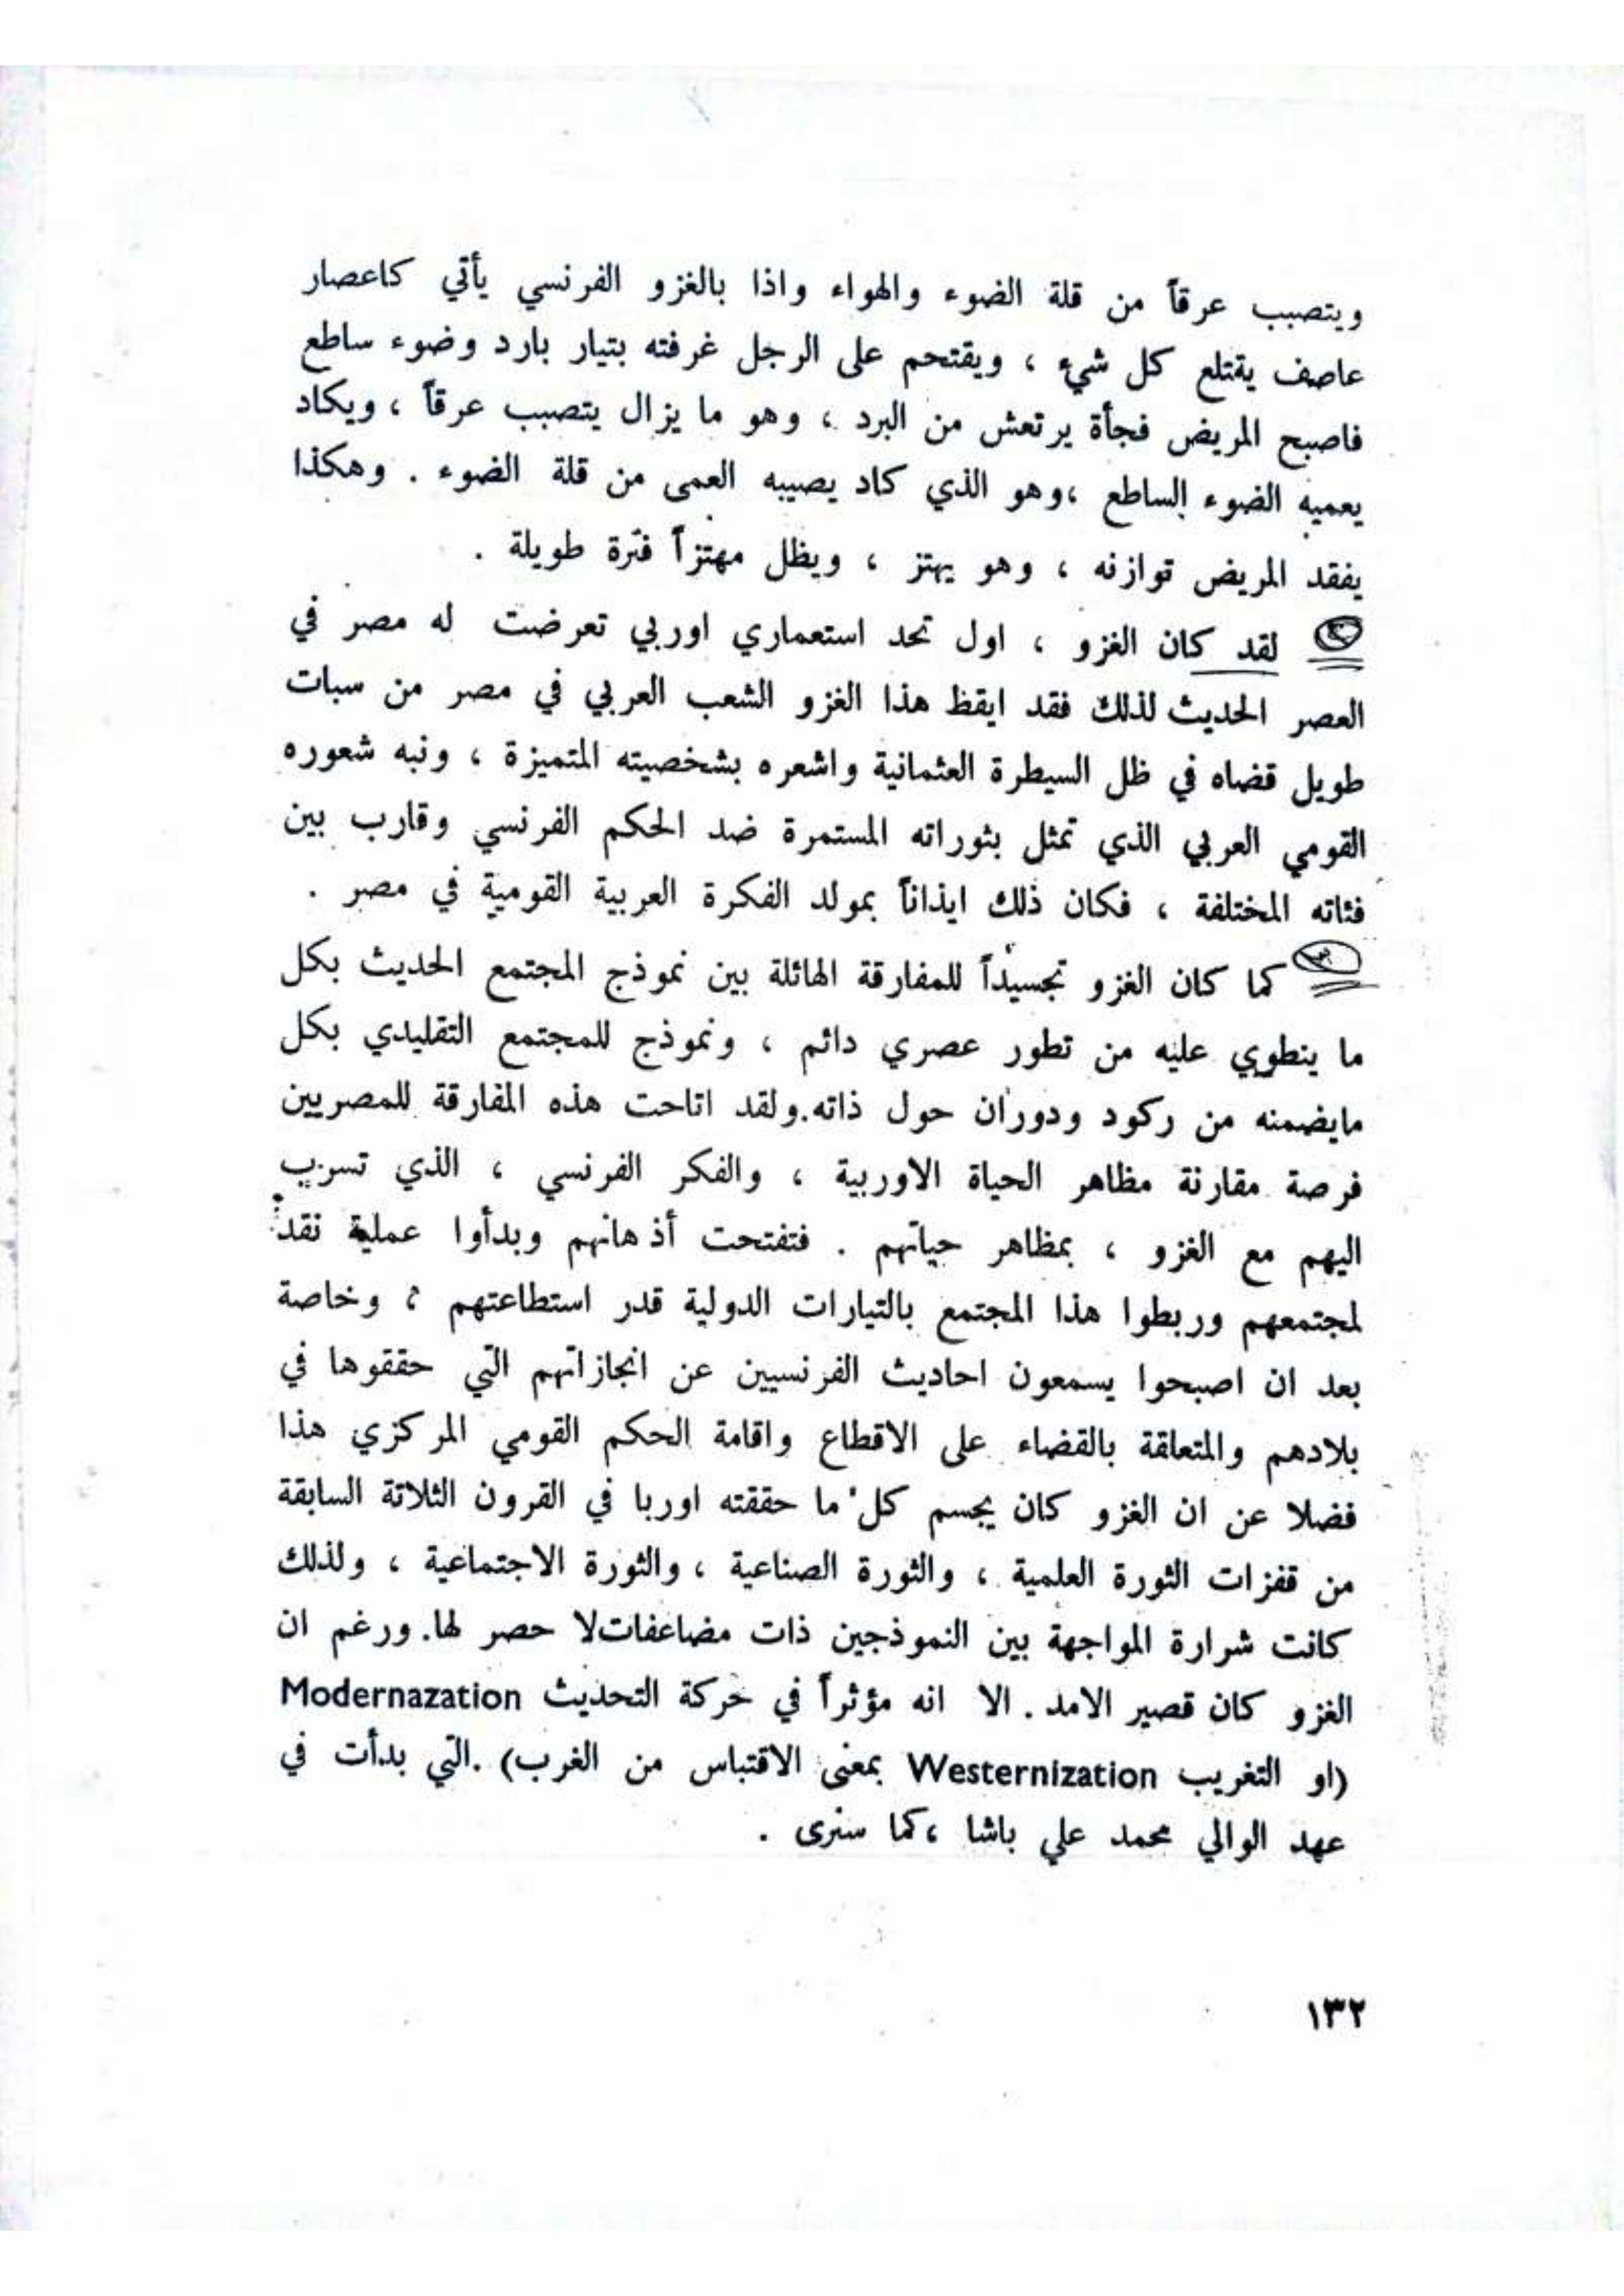 ويتصبب عرقاً من قلة الضوء والهواء واذا بالغزو الفرنسي يأتي كاعصار
عاصف يقتلع كل شيء ، ويقتحم على الرجل غرفته بتيار بارد وضوء ساطع
فاصبح المريض فجأة يرتعش من البرد ، وهو ما يزال يتصبب عرقاً ، ويكاد
يعميه الضوء الساطع ،وهو الذي كاد يصيبه العمى من قلة الضوء . وهكذا
يفقد المريض توازنه ، وهو يهتز ، ويظل مهتزاً فترة طويلة .
لقد كان الغزو ، اول تحد استعماري اوربي تعرضت له مصر في
العصر الحديث لذلك فقد ايقظ هذا الغزو الشعب العربي في مصر من سبات
طويل قضاه في ظل السيطرة العثمانية واشعره بشخصيته المتميزة ، ونبه شعوره
القومي العربي الذي تمثل بثوراته المستمرة ضد الحكم الفرنسي وقارب بين
فئاته المختلفة ، فكان ذلك ايذاناً بمولد الفكرة العربية القومية في مصر .
كما كان الغزو تجسيداً للمفارقة الهائلة بين نموذج المجتمع الحديث بكل
ما ينطوي عليه من تطور عصري دائم ، ونموذج للمجتمع التقليدي بكل
مايضمنه من ركود ودوران حول ذاته.ولقد اتاحت هذه المفارقة للمصريين
فرصة مقارنة مظاهر الحياة الاوربية ، والفكر الفرنسي ، الذي تسرب
اليهم مع الغزو ، بمظاهر حياتهم . فتفتحت أذهانهم وبدأوا عملية نقد
لمجتمعهم وربطوا هذا المجتمع بالتيارات الدولية قدر استطاعتهم ؛ وخاصة
بعد ان اصبحوا يسمعون احاديث الفرنسيين عن انجازاتهم التي حققوها في
بلادهم والمتعلقة بالقضاء على الاقطاع واقامة الحكم القومي المركزي هذا
فضلا عن ان الغزو كان يجسم كل ما حققته اوربا في القرون الثلاثة السابقة
من قفزات الثورة العلمية ، والثورة الصناعية ، والثورة الاجتماعية ، ولذلك
كانت شرارة المواجهة بين النموذجين ذات مضاعفات لا حصر لها. ورغم ان
الغزو كان قصير الامد . الا انه مؤثراً في حركة التحديث Modernazation
(او التغريب Westernization بمعنى الاقتباس من الغرب) .التي بدأت في
عهد الوالي محمد علي باشا ،كما سنرى .
١٣٢